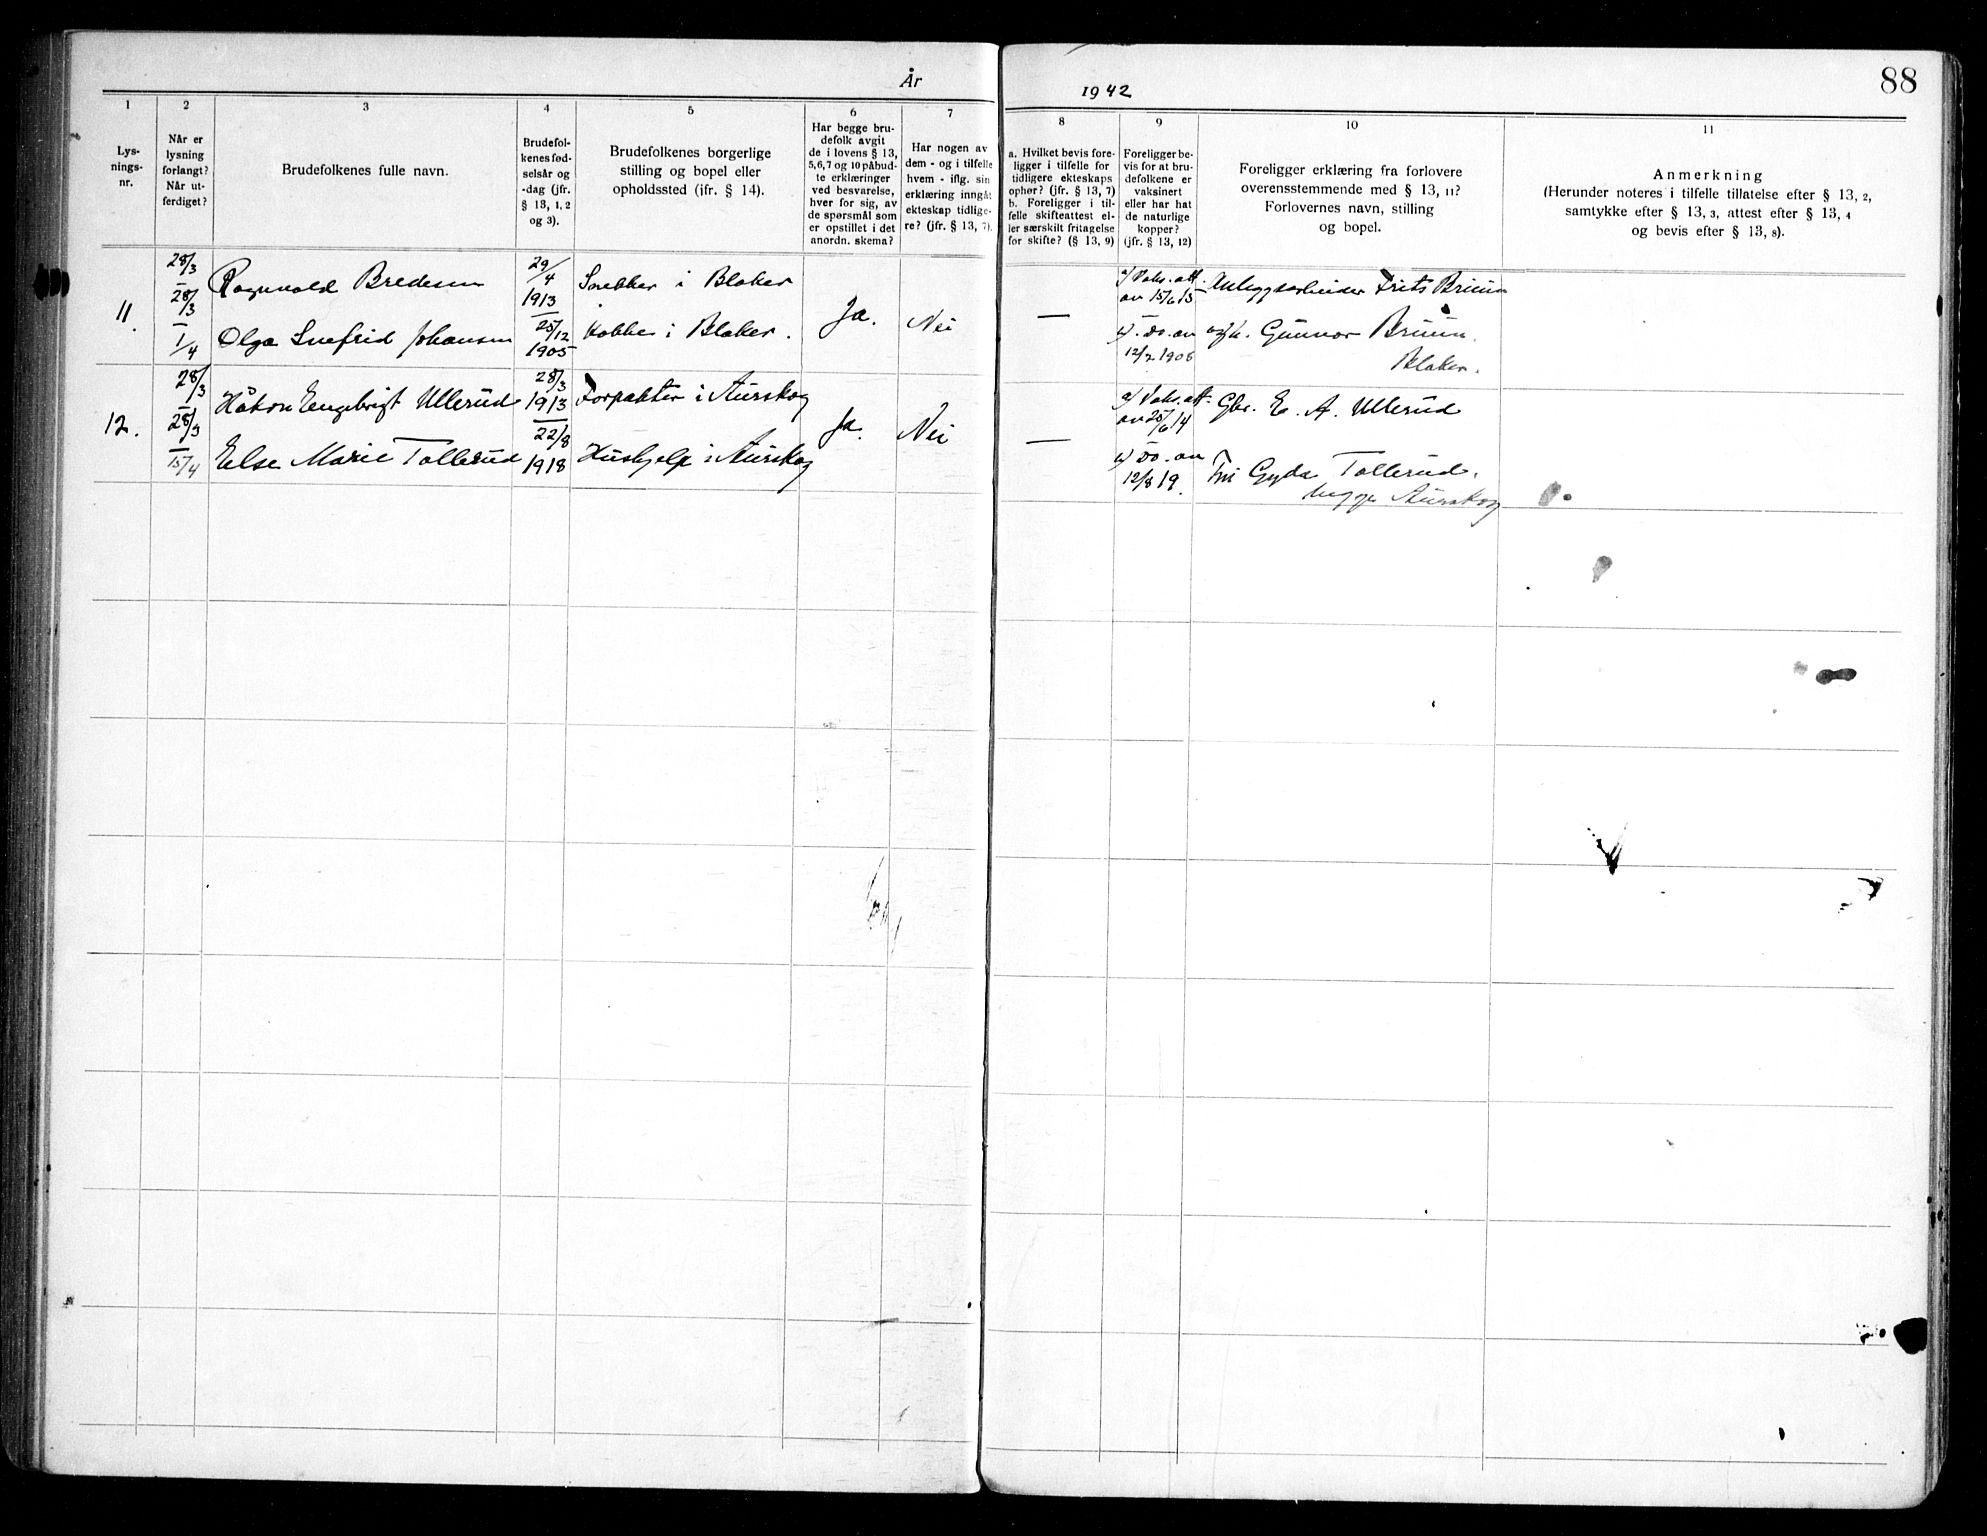 År
1942
88
1
2
3
4
5
6
7
8
9
10
11
Lys-
nings-
nr.
Når er
lysning
forlangt?
Når ut-
ferdiget?
Brudefolkenes fulle navn.
Brudefol-
kenes fød-
selsår og
-dag (jfr.
§ 13, 1, 2
og 3).
Brudefolkenes borgerlige
stilling og bopel eller
opholdssted (jfr. § 14).
Har begge bru-
defolk avgit
de i lovens § 13,
5,6,7 og 10 påbud-
te erklæringer
ved besvarelse,
hver for sig, av
de spørsmål som
er opstillet i det
anordn. skema?
Har nogen av
dem - og i tilfelle
hvem - iflg. sin
erklæring inngåt
ekteskap tidlige-
re? (jfr. § 13, 7).
a. Hvilket bevis fore-
ligger i tilfelle for
tidligere ekteskaps
ophør? (jfr. § 13, 7)
b. Foreligger i til-
felle skifteattest el-
ler særskilt fritagelse
for skifte? (§ 13, 9)
Foreligger be-
vis for at bru-
defolkene er
vaksinert
eller har hat
de naturlige
kopper?
(jfr. § 13, 12)
Foreligger erklæring fra forlovere
overensstemmende med § 13, 11?
Forlovernes navn, stilling
og bopel.
Anmerkning
(Herunder noteres i tilfelle tillatelse efter § 13, 2,
samtykke efter § 13, 3, attest efter § 13, 4
og bevis efter § 13, 8).
11.
28/3
28/3
1/4
Ragnvald Bredesen
Olga Snefrid Johansen
29/4
1913
25/12
1905
Snekker i Blaker
Kokke i Blaker.
Ja.
Nei
—
a) Vaks. att.
av 15/6 15
b) do. av
12/2 1906
Anleggsarbeider Frits Bruun
Gunnar Bruun.
Blaker.
12.
28/3
28/3
15/4
Håkon Engebrigt Ullerud
Else Marie Tollerud
28/3
1913
22/8
1918
Forpakter i Aurskog
Hushjelp i Aurskog
Ja.
Nei
—
a) Vaks. att.
av 25/6 14
b) do. av
12/8 19.
Gbr. E. A. Ullerud
Fru Gyda Tollerud.
begge Aurskog